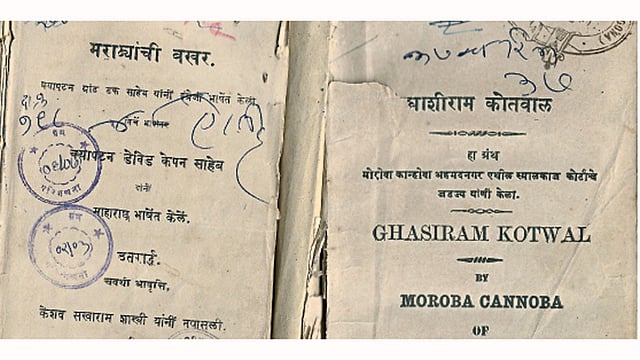 मराठ्यांची बखर.
क्याप्टन ग्रांट डफ साहेब यांनीं इंग्रेजी भाषेंत केली
क्याप्टन डेविड केपन साहेब
यांनीं
महाराष्ट्र भाषेंत केलें.
उत्तरार्द्ध.
चवथी आवृत्ति,
केशव सखाराम शास्त्री यांनीं तपासली.
घाशीराम कोतवाल
हा ग्रंथ
मोरोबा कान्होबा अहमदनगर एथील स्मालकाज कोर्टाचे
जडज्य यांणी केला.
GHASIRAM KOTWAL
BY
MOROBA CANNOBA
OF